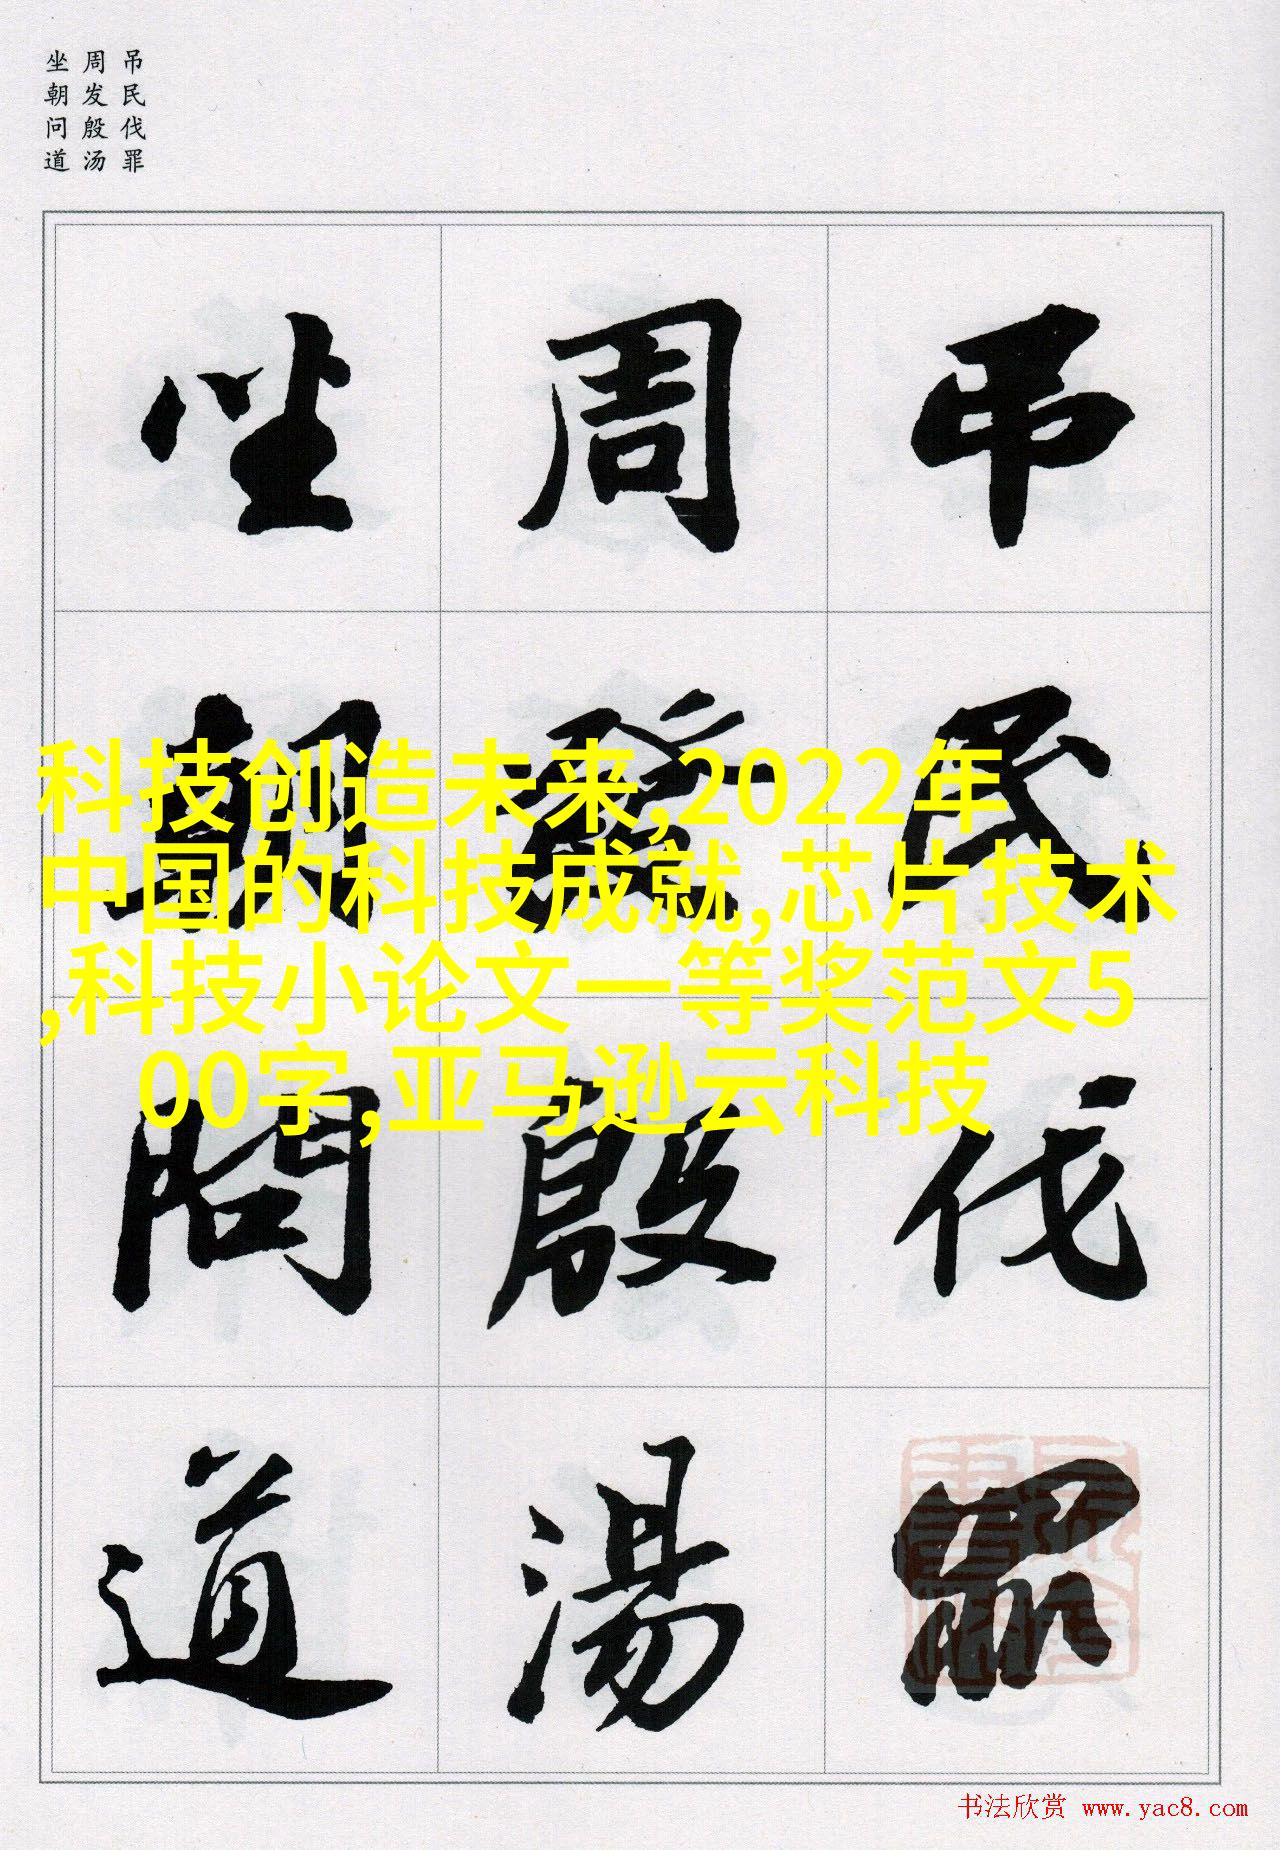 吊民伐罪
周发殷汤
坐朝问道
吊民伐罪
周發殷湯
坐朝問道
科技创造未来,2022年
中国的科技成就,芯片技术
,科技小论文一等奖范文5
00字,亚马逊云科技
书法欣赏 www.yac8.com